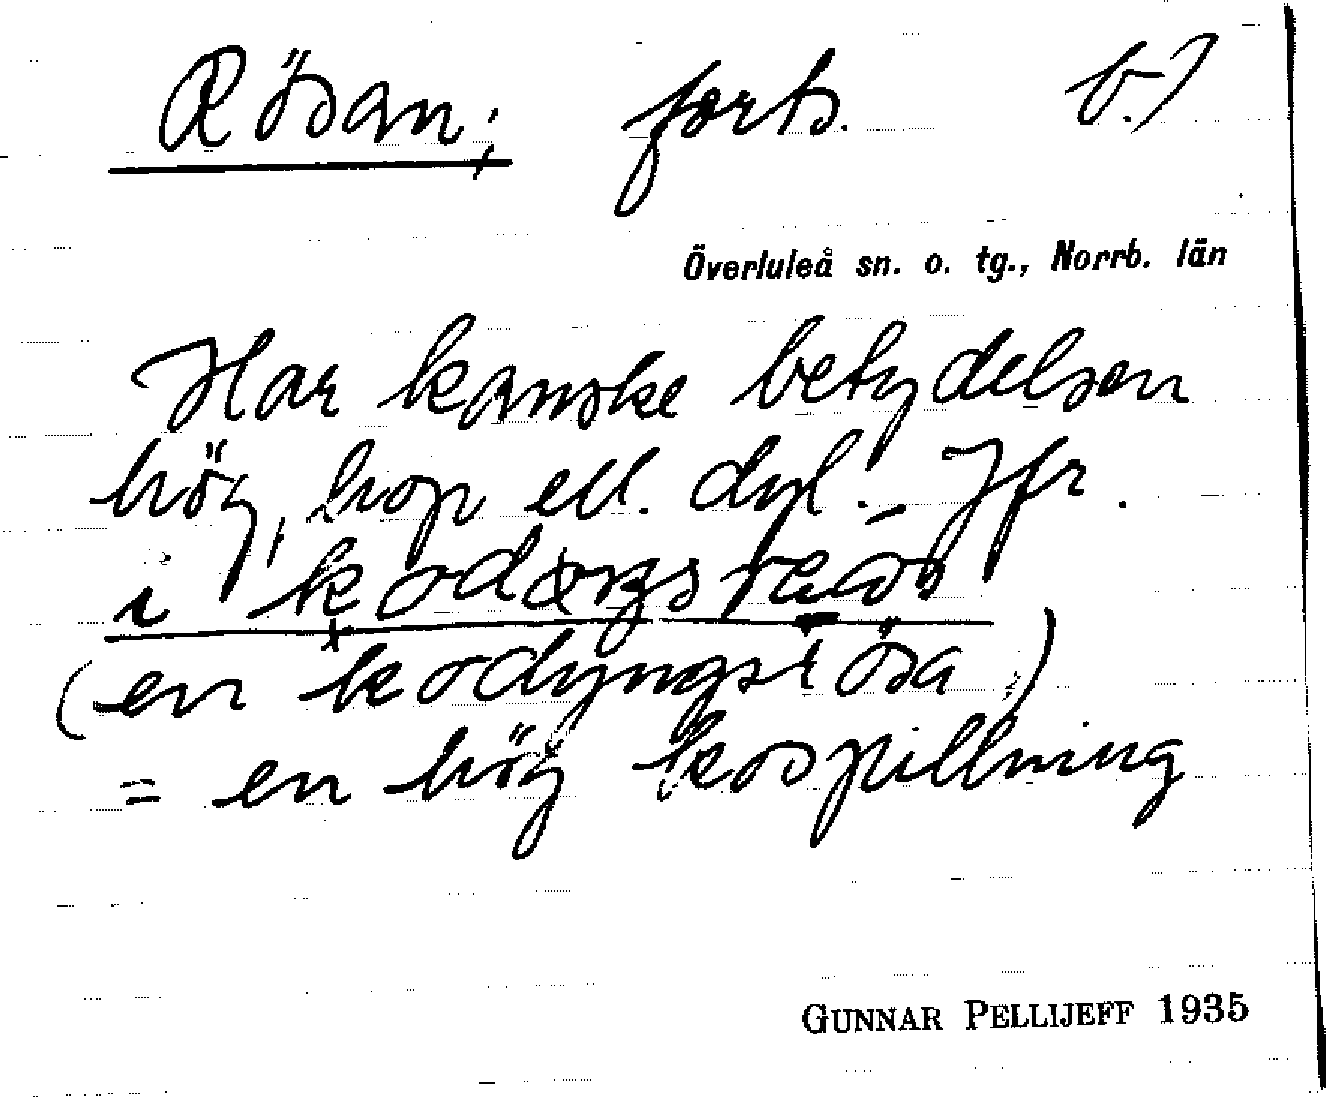 Rösan, forts. b.)
Överluleå sn. o. tg., Norrb. län
Har kanske betydelsen
hög, hop ell. dyl. Jfr.
i
(en kodyngsrösa)
= en hög kospillning
GUNNAR PELLIJEFF 1935